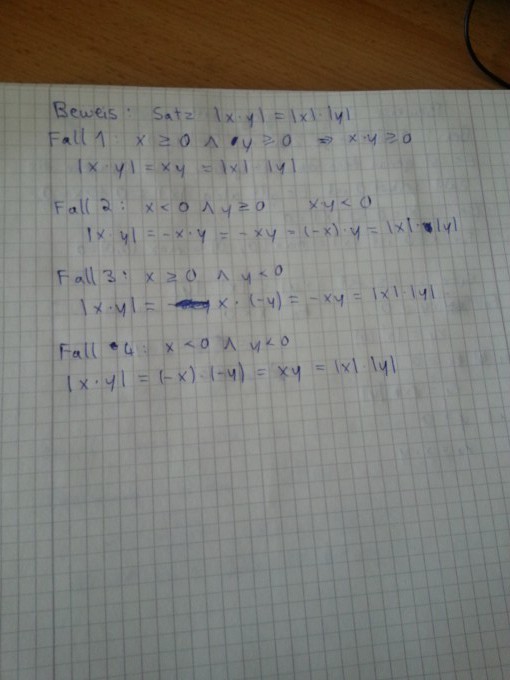 Beweis: Satz |x·y| = |x|·|y|
Fall 1: x ≥ 0 ∧ y ≥ 0 ⇒ x·y ≥ 0
|x·y| = xy = |x|·|y|
Fall 2: x < 0 ∧ y ≥ 0 x·y < 0
|x·y| = -x·y = -xy = (-x)·y = |x|·|y|
Fall 3: x ≥ 0 ∧ y < 0
|x·y| = x·(-y) = -xy = |x|·|y|
Fall 4: x < 0 ∧ y < 0
|x·y| = (-x)·(-y) = xy = |x|·|y|